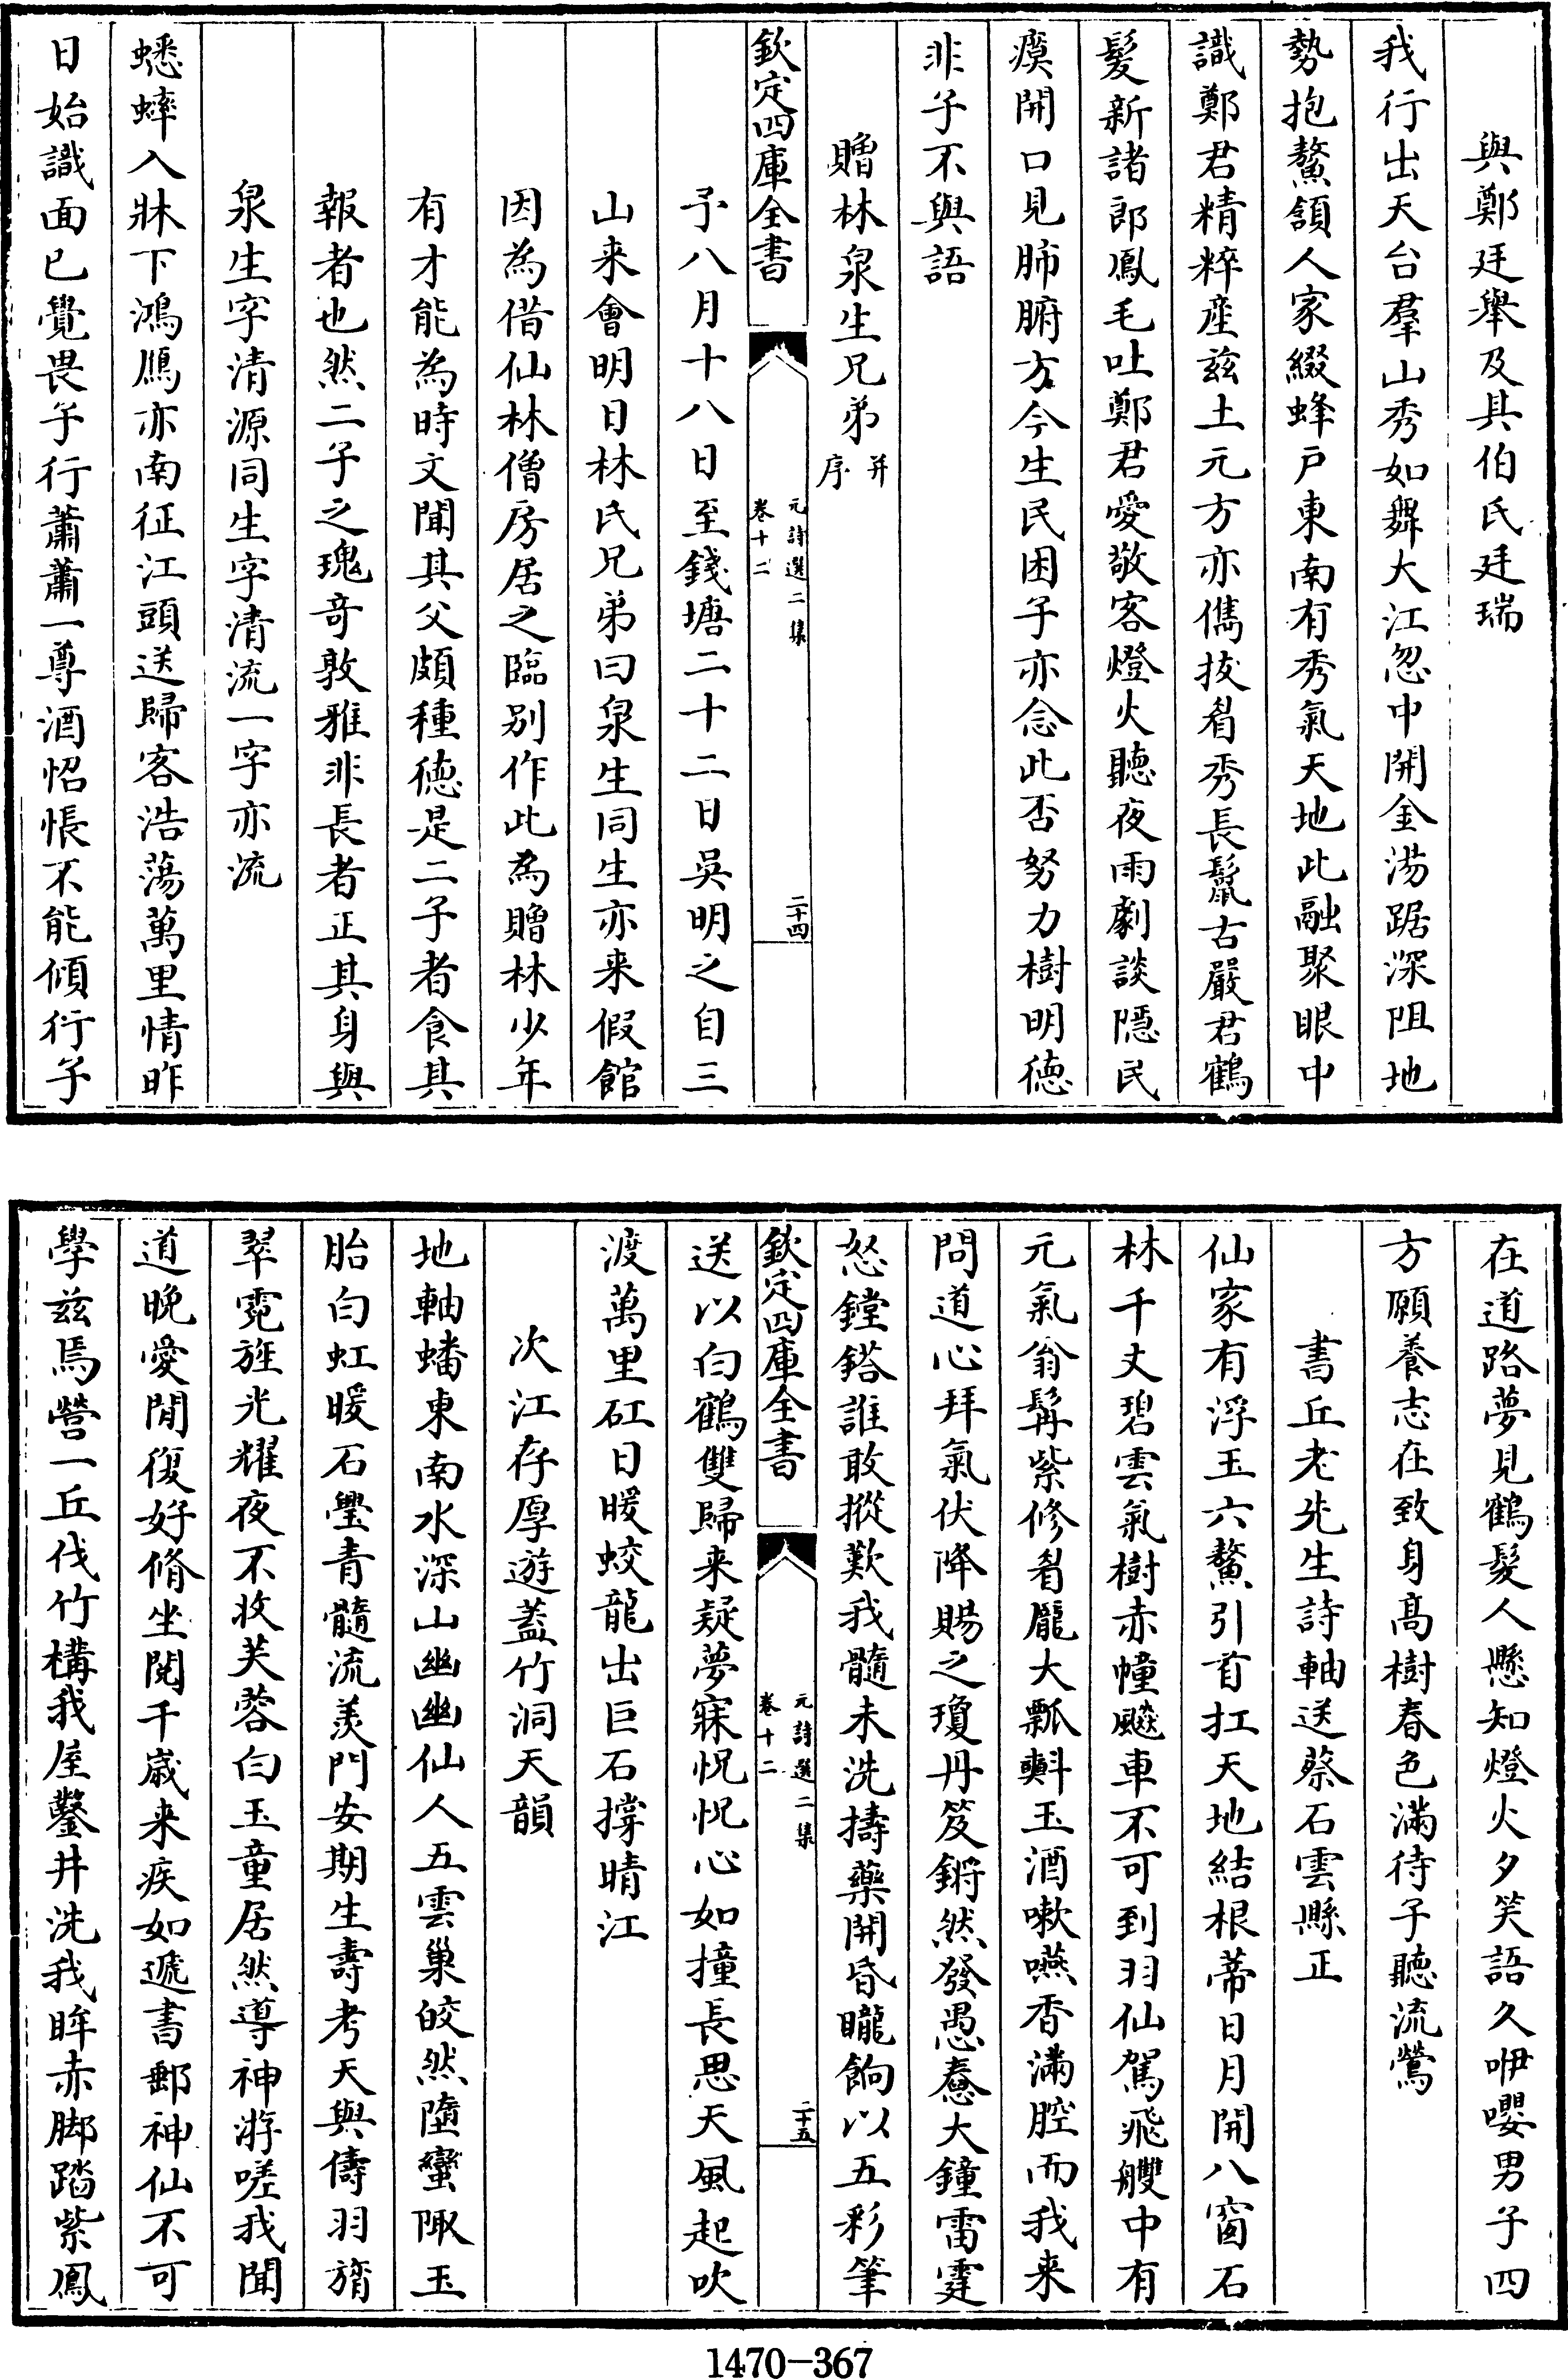 與鄭廷舉及其伯氏廷瑞
我行出天台羣山秀如舞大江忽中開金湯踞深阻地
勢抱鰲頷人家綴蜂户東南有秀氣天地此融聚眼中
識鄭君精粹産兹土元方亦儁拔眉秀長鬛古嚴君鶴
髮新諸郎鳳毛吐鄭君愛敬客燈火聽夜雨劇談隠民
瘼開口見肺腑方今生民困子亦念此否努力樹明徳
非子不與語
贈林泉生兄弟并序
欽定四庫全書
元詩選二集
卷十二
二十四
予八月十八日至錢塘二十二日吳明之自三
山来會明日林氏兄弟曰泉生同生亦来假館
因為借仙林僧房居之臨别作此為贈林少年
有才能為時文聞其父頗種徳是二子者食其
報者也然二子之瑰奇敦雅非長者正其身與
泉生字清源同生字清流一字亦流
蟋蟀入牀下鴻鴈亦南征江頭送歸客浩蕩萬里情昨
日始識面已覺畏子行蕭蕭一尊酒怊悵不能傾行子
在道路夢見鶴髮人懸知燈火夕笑語久咿嚶男子四
方願養志在致身髙樹春色滿待子聽流鶯
書丘老先生詩軸送蔡石雲縣正
仙家有浮玉六鰲引首扛天地結根蒂日月開八窗石
林千丈碧雲氣樹赤幢飈車不可到羽仙駕飛艭中有
元氣翁髯紫修眉龎大瓢㪺玉酒嗽嚥香滿腔而我来
問道心拜氣伏降賜之瓊丹笈鏘然發愚惷大鐘雷霆
怒鏜鎝誰敢摐歎我髓未洗擣藥開昏矓餉以五彩筆
欽定四庫全書
元詩選二集
卷十二
二十五
送以白鶴雙歸来疑夢寐怳怳心如撞長思天風起吹
渡萬里矼日暖蛟龍出巨石撐晴江
次江存厚遊蓋竹洞天韻
地軸蟠東南水深山幽幽仙人五雲巢皎然墮蠻陬玉
胎白虹暖石璺青髓流羡門安期生壽考天與儔羽旓
翠霓旌光耀夜不收芙蓉白玉童居然導神游嗟我聞
道晩愛閒復好脩坐閲千歳来疾如遞書郵神仙不可
學兹焉營一丘伐竹構我屋鑿井洗我眸赤脚踏紫鳳
1470-367